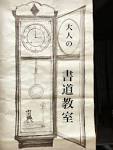 大人の
書道教室